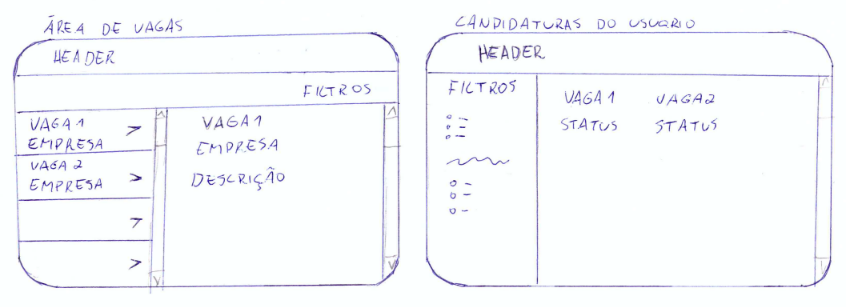 ÁREA DE VAGAS
HEADER
FILTROS
VAGA 1
EMPRESA
VAGA 2
EMPRESA
VAGA 1
EMPRESA
DESCRIÇÃO
CANDIDATURAS DO USUÁRIO
HEADER
FILTROS
VAGA 1 VAGA 2
STATUS STATUS